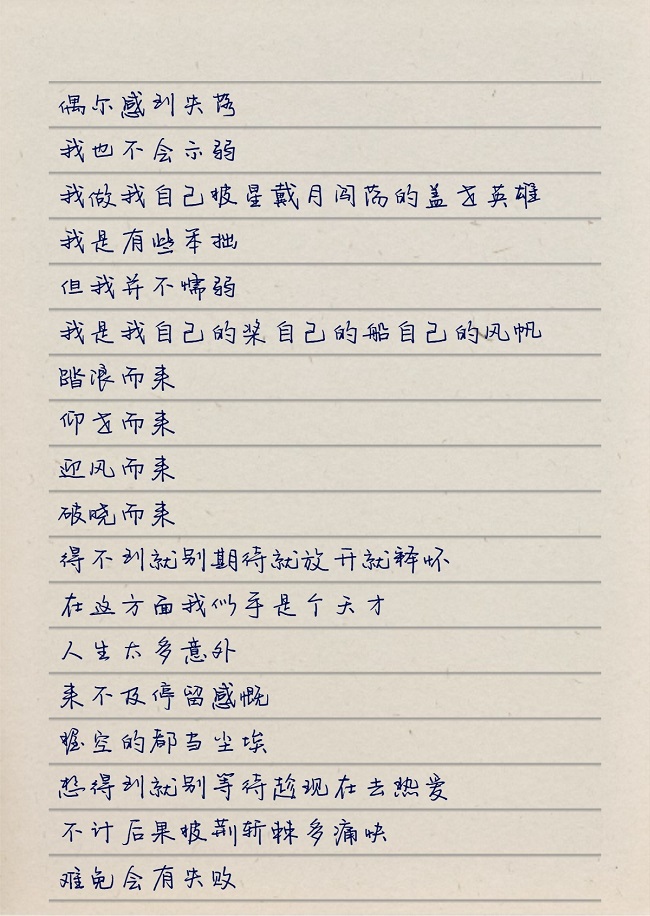 偶尔感到失落
我也不会示弱
我做我自己披星戴月闯荡的盖世英雄
我是有些笨拙
但我并不懦弱
我是我自己的桨自己的船自己的风帆
踏浪而来
仰世而来
迎风而来
破晓而来
得不到就别期待就放开就释怀
在这方面我似乎是个天才
人生太多意外
来不及停留感慨
握空的都当尘埃
想得到就别等待趁现在去热爱
不计后果披荆斩棘多痛快
难免会有失败